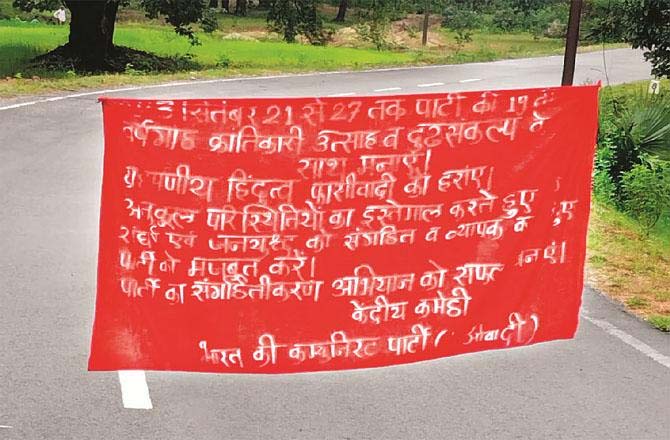 सितंबर 21 से 27 तक पार्टी की 19
क्रांतिकारी उत्साह व दृढ़सकल्प
साथ मनाएं।
हिंदुत्व फासीवादी को हराएं।
अनुकूल परिस्थितियों का इस्तेमाल करते हुए
एवं जनयुद्ध को संगठित व व्यापक
पार्टी को मजबूत करें।
पार्टी का संगठितीकरण अभियान को सफल
केंद्रीय कमेटी
भारत की कम्युनिस्ट पार्टी (